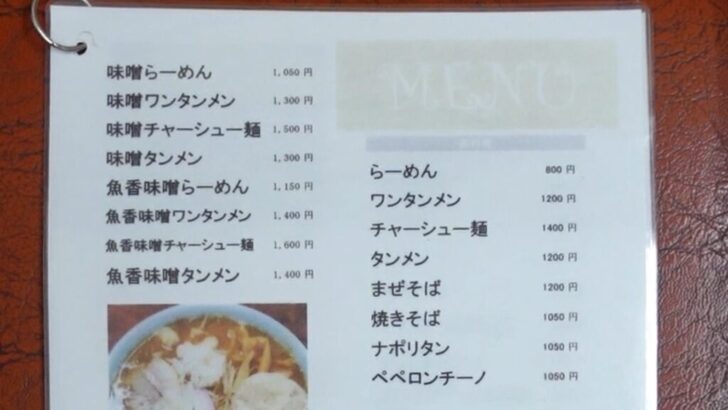 味噌らーめん 1,050 円
味噌ワンタンメン 1,300 円
味噌チャーシュー麺 1,500 円
味噌タンメン 1,300 円
魚香味噌らーめん 1,150 円
魚香味噌ワンタンメン 1,400 円
魚香味噌チャーシュー麺 1,600 円
魚香味噌タンメン 1,400 円
MENU
らーめん 800 円
ワンタンメン 1200 円
チャーシュー麺 1400 円
タンメン 1200 円
まぜそば 1200 円
焼きそば 1050 円
ナポリタン 1050 円
ペペロンチーノ 1050 円